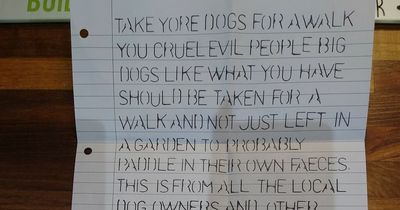 BUIL
TAKE YORE DOGS FOR A WALK
YOU CRUEL EVIL PEOPLE BIG
DOGS LIKE WHAT YOU HAVE
SHOULD BE TAKEN FOR A
WALK AND NOT JUST LEFT IN
A GARDEN TO PROBABLY
PADDLE IN THEIR OWN FAECES.
THIS IS FROM ALL THE LOCAL
DOG OWNERS AND OTHER